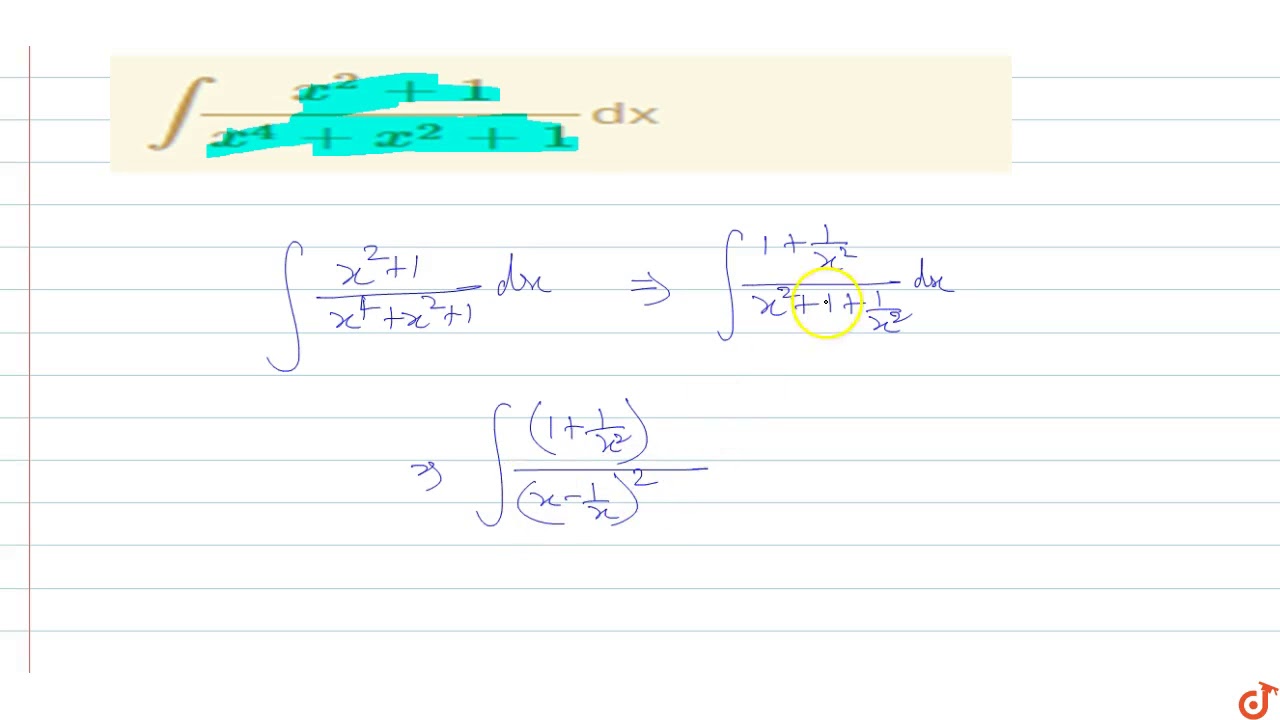 ∫ x² + 1 / x⁴ + x² + 1 dx
∫ x²+1 / x⁴+x²+1 dx ⇒ ∫ 1+1/x² / x²+1+1/x² dx
⇒ ∫ (1+1/x²) / (x-1/x)²